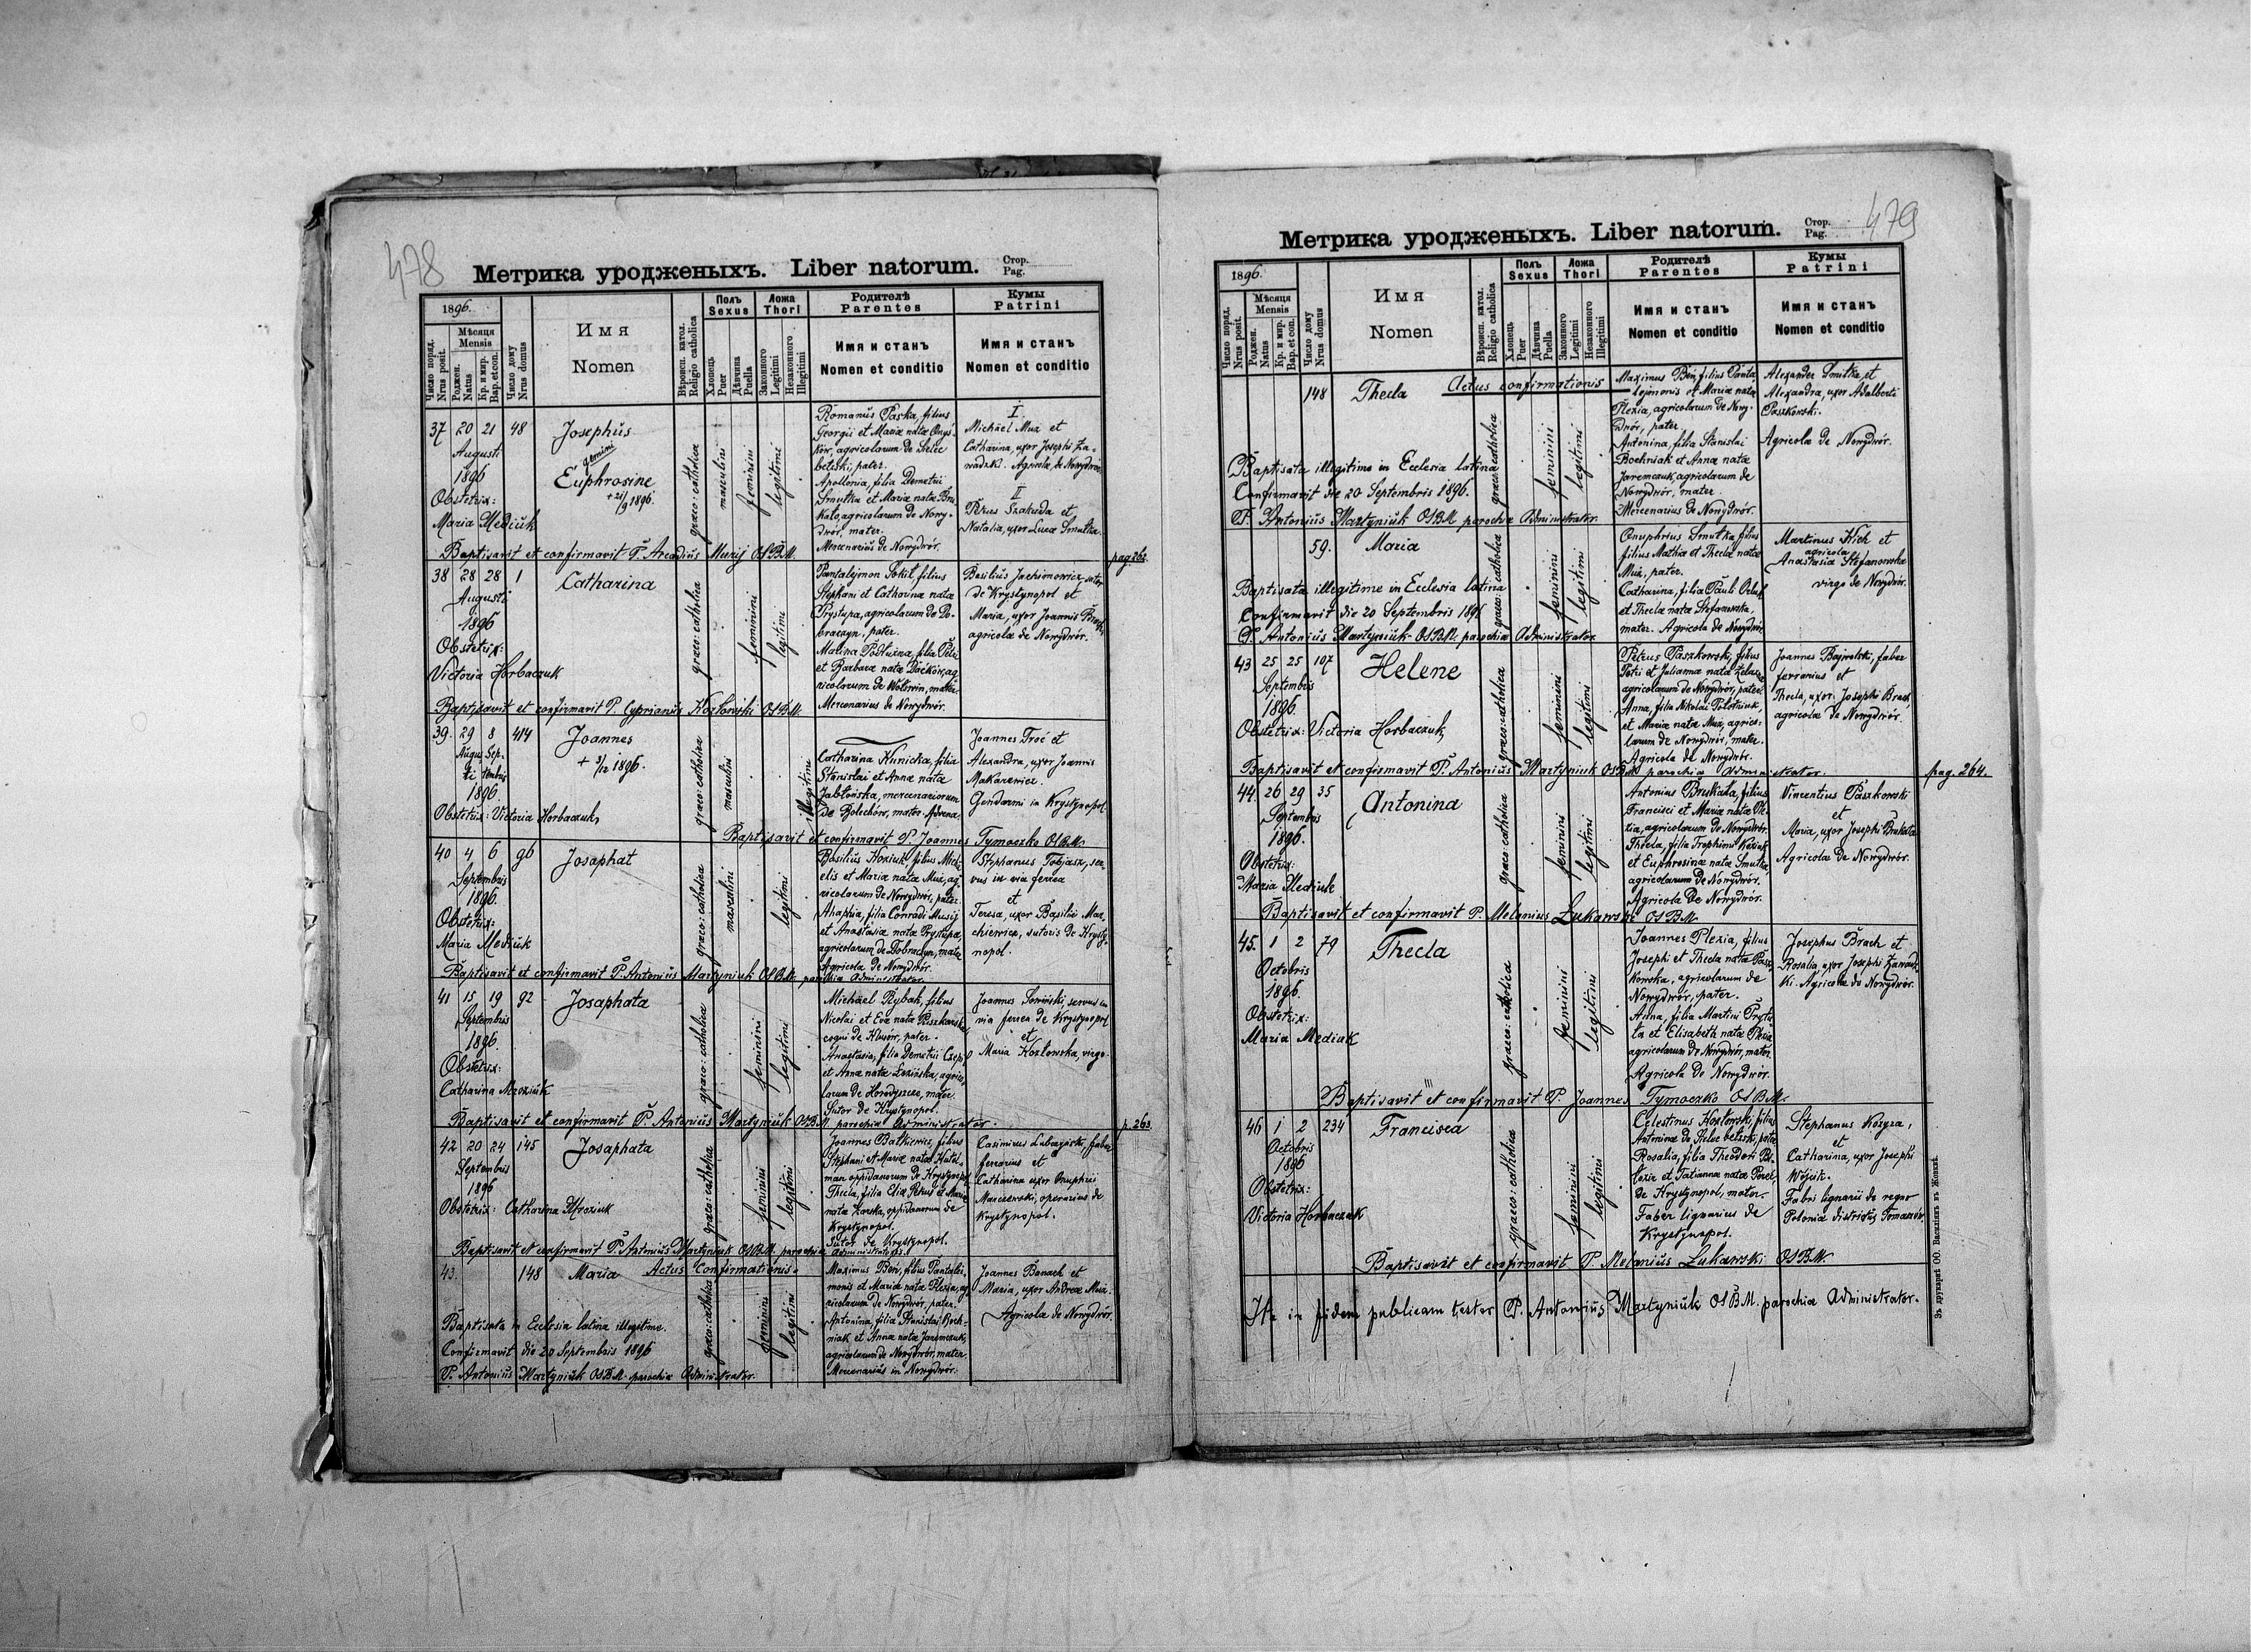 478
Метрика уродженыхъ. Liber natorum.
Стор.
Pag.
1896.
Число поряд.
Nrus posit.
Мѣсяця
Mensis
Роджен.
Natus
Кр. и мир.
Bap. et con.
Число дому
Nrus domus
Имя
Nomen
Вѣроисп. катол.
Religio catholica
Полъ
Sexus
Хлопець
Puer
Дѣвчина
Puella
Ложа
Thori
Законного
Legitimi
Незаконного
Illegitimi
Родителѣ
Parentes
Имя и станъ
Nomen et conditio
Кумы
Patrini
Имя и станъ
Nomen et conditio
37 20 21 48 Josephus
Augusti
1896
gemini
Euphrosine
+ 21/9 1896.
Obstetrix:
Maria Mediuk
graeco: catholica
masculini
feminini
legitimi
Romanus Paska, filius
Georgii et Mariæ natæ
agricolarum de Sielec
betzki, pater.
Apollonia, filia Demetrii
Smutka et Mariæ natæ Bru
kało, agricolarum de Nowy-
dwór, mater.
Mercenarius de Nowydwór.
I
Michael Muz et
Catharina, uxor Josephi Za-
wadzki. Agricolæ de Nowydwór.
II
Petrus Szakieda et
Natalia, uxor Lucæ Smutka.
Baptisavit et confirmavit P. Arcadius Musij OSBM.
pag 262.
38 28 28 1 Catharina
Augusti
1896
Obstetrix:
Victoria Horbaczuk
graeco: catholica
feminini
legitimi
Pantalejmon Sokit, filius
Stephani et Catharinæ natæ
Prystupa, agricolarum de Do-
braczyn, pater.
Malina Podłuzna, filia Petri
et Barbaræ natæ Daćków, ag
ricolarum de Wolswin, mater.
Mercenarius de Nowydwór.
Basilius Jachimowicz, sutor
de Krystynopol et
Maria, uxor Joannis Brach,
agricolæ de Nowydwór.
Baptisavit et confirmavit P. Cyprianus Kozłowski OSBM.
39. 29 8 414 Joannes
Augus Sep-
ti tembris
1896
+ 3/12 1896.
Obstetrix: Victoria Horbaczuk,
graeco: catholica
masculini
illegitimi
Catharina Kunicka, filia
Stanislai et Annæ natæ
Jabłońska, mercenariorum
de Bolechów, mater. Advena.
Joannes Troć et
Alexandra, uxor Joannis
Makarewicz.
Gendarmi in Krystynopol.
Baptisavit et confirmavit P. Joannes Tymoczko OSBM.
40 4 6 96 Josaphat
Septembris
1896.
Obstetrix:
Maria Mediuk
graeco: catholica
masculini
legitimi
Basilius Koziuk, filius Mich
elis et Mariæ natæ Muz, ag
ricolarum de Nowydwór, pater.
Ahaphia, filia Conradi Musij
et Anastasiæ natæ Prystupa,
agricolarum de Dobraczyn, mater
Agricola de Nowydwór.
Stephanus Tobjasz, ser
vus in via ferrea
et
Teresa, uxor Basilii Mar
chiewicz, sutoris de Krysty-
nopol.
Baptisavit et confirmavit P. Antonius Martyniuk OSBM. parochiæ administrator.
41 15 19 92 Josaphata
Septembris
1896.
Obstetrix:
Catharina Mroziuk
graeco: catholica
feminini
legitimi
Michael Rybak, filius
Nicolai et Evæ natæ Piszkarska
coqui de Klusów, pater.
Anastasia, filia Demetrii
et Annæ natæ agrico
larum de Horodyszcze, mater.
Sutor de Krystynopol.
Joannes servus in
via ferrea de Krystynopol
et
Maria Kozłowska, virgo.
Baptisavit et confirmavit P. Antonius Martyniuk OSBM, parochiæ administrator.
p. 263.
42 20 24 145 Josaphata
Septembris
1896
Obstetrix: Catharina Mroziuk
graeco: catholica
feminini
legitimi
Joannes Batkiewicz, filius
Stephani et Mariæ natæ
man oppidanorum de Krystynopol.
Thecla, filia Eliæ Petrus et Mariæ
natæ Zarska, oppidanorum de
Krystynopol.
Sutor de Krystynopol.
Casimirus faber
ferrarius et
Catharina uxor Onuphrii
operarius de
Krystynopol.
Baptisavit et confirmavit P. Antonius Martyniuk OSBM. parochiæ administrator.
43. 148 Maria Actus Confirmationis.
Baptisata in Ecclesia latina illegitime.
Confirmavit die 20 Septembris 1896
P. Antonius Martyniuk OSBM. parochiæ Administrator.
graeco: catholica
feminini
legitimi
Maximus Beń, filius Pantalei-
monis et Mariæ natæ Plezia, ag
ricolarum de Nowydwór, pater.
Antonina, filia Stanislai Boch-
niak et Annæ natæ Jaremczuk,
agricolarum de Nowydwór, mater.
Mercenarius in Nowydwór.
Joannes Banach et
Maria, uxor Andreæ Muz.
Agricolæ de Nowydwór.
479
Метрика уродженыхъ. Liber natorum.
Стор.
Pag.
1896.
Число поряд.
Nrus posit.
Мѣсяця
Mensis
Роджен.
Natus
Кр. и мир.
Bap. et con.
Число дому
Nrus domus
Имя
Nomen
Вѣроисп. катол.
Religio catholica
Полъ
Sexus
Хлопець
Puer
Дѣвчина
Puella
Ложа
Thori
Законного
Legitimi
Незаконного
Illegitimi
Родителѣ
Parentes
Имя и станъ
Nomen et conditio
Кумы
Patrini
Имя и станъ
Nomen et conditio
148 Thecla Actus confirmationis
Baptisata illegitime in Ecclesia latina
Confirmavit die 20 Septembris 1896.
P. Antonius Martyniuk OSBM parochiæ Administrator.
graeco: catholica
feminini
legitimi
Maximus Beń, filius Panta
lejmonis et Mariæ natæ
Plezia, agricolarum de Nowy-
dwór, pater.
Antonina, filia Stanislai
Bochniak et Annæ natæ
Jaremczuk, agricolarum de
Nowydwór, mater.
Mercenarius de Nowydwór.
Alexander Smutka, et
Alexandra, uxor Adalberti
Paszkowski.
Agricolæ de Nowydwór.
59. Maria
Baptisata illegitime in Ecclesia latina
Confirmavit die 20 Septembris 1896
P. Antonius Martyniuk OSBM parochiæ Administrator
graeco: catholica
feminini
legitimi
Onuphrius Smutka, filius
filius Mathiæ et Theclæ natæ
Muz, pater.
Catharina, filia Pauli
et Theclæ natæ Stefanowska,
mater. Agricola de Nowydwór.
Martinus Kich et
agricola
Anastasia Stefanowska
virgo de Nowydwór.
43 25 25 107 Helene
Septembris
1896.
Obstetrix: Victoria Horbaczuk,
graeco: catholica
feminini
legitimi
Petrus Paszkowski, filius
Petri et Juliannæ natæ
agricolarum de Nowydwór, pater.
Anna, filia Nikolai
et Mariæ natæ Muz, agrico-
larum de Nowydwór, mater.
Agricola de Nowydwór.
Joannes faber
ferrarius et
Thecla, uxor Josephi Brach,
agricolæ de Nowydwór.
Baptisavit et confirmavit P. Antonius Martyniuk OSBM parochiæ administrator.
pag. 264.
44. 26 29 35 Antonina
Septembris
1896.
Obstetrix:
Maria Mediuk
graeco: catholica
feminini
legitimi
Antonius Brukała, filius
Francisci et Mariæ natæ Ple
zia, agricolarum de Nowydwór.
Thecla, filia Trophimi Koziuk
et Euphrosinæ natæ Smutka,
agricolarum de Nowydwór.
Agricola de Nowydwór.
Vincentius Paszkowski
et
Maria, uxor Josephi Brukała
Agricolæ de Nowydwór.
Baptisavit et confirmavit P. Melanius Łukawski OSBM.
45. 1 2 79 Thecla
Octobris
1896.
Obstetrix:
Maria Mediuk
graeco: catholica
feminini
legitimi
Joannes Plezia, filius
Josephi et Theclæ natæ Pasz
kowska, agricolarum de
Nowydwór, pater.
Anna, filia Martini Pryty
ła et Elisabeth natæ Plezia
agricolarum de Nowydwór, mater.
Agricola de Nowydwór.
Josephus Brach et
Rosalia, uxor Josephi Zawadz
ki. Agricolæ de Nowydwór.
Baptisavit et confirmavit P. Joannes Tymoczko OSBM.
46 1 2 234 Francisca
Octobris
1896
Obstetrix:
Victoria Horbaczuk
graeco: catholica
feminini
legitimi
Celestinus Kozłowski, filius
Antoninæ de Sielec betzski, pater
Rosalia, filia Theodori
et Tatiannæ natæ
de Krystynopol, mater.
Faber lignarius de
Krystynopol.
Stephanus Kozyra,
et
Catharina, uxor Josephi
Wójcik.
Fabri lignarii de regno
Poloniæ districtus Tomaszów.
Baptisavit et confirmavit P. Melanius Łukawski OSBM.
Ita in fidem publicam testor P. Antonius Martyniuk OSBM. parochiæ Administrator.
Зъ друкарнѣ ОО. Василіянъ въ Жовквѣ.